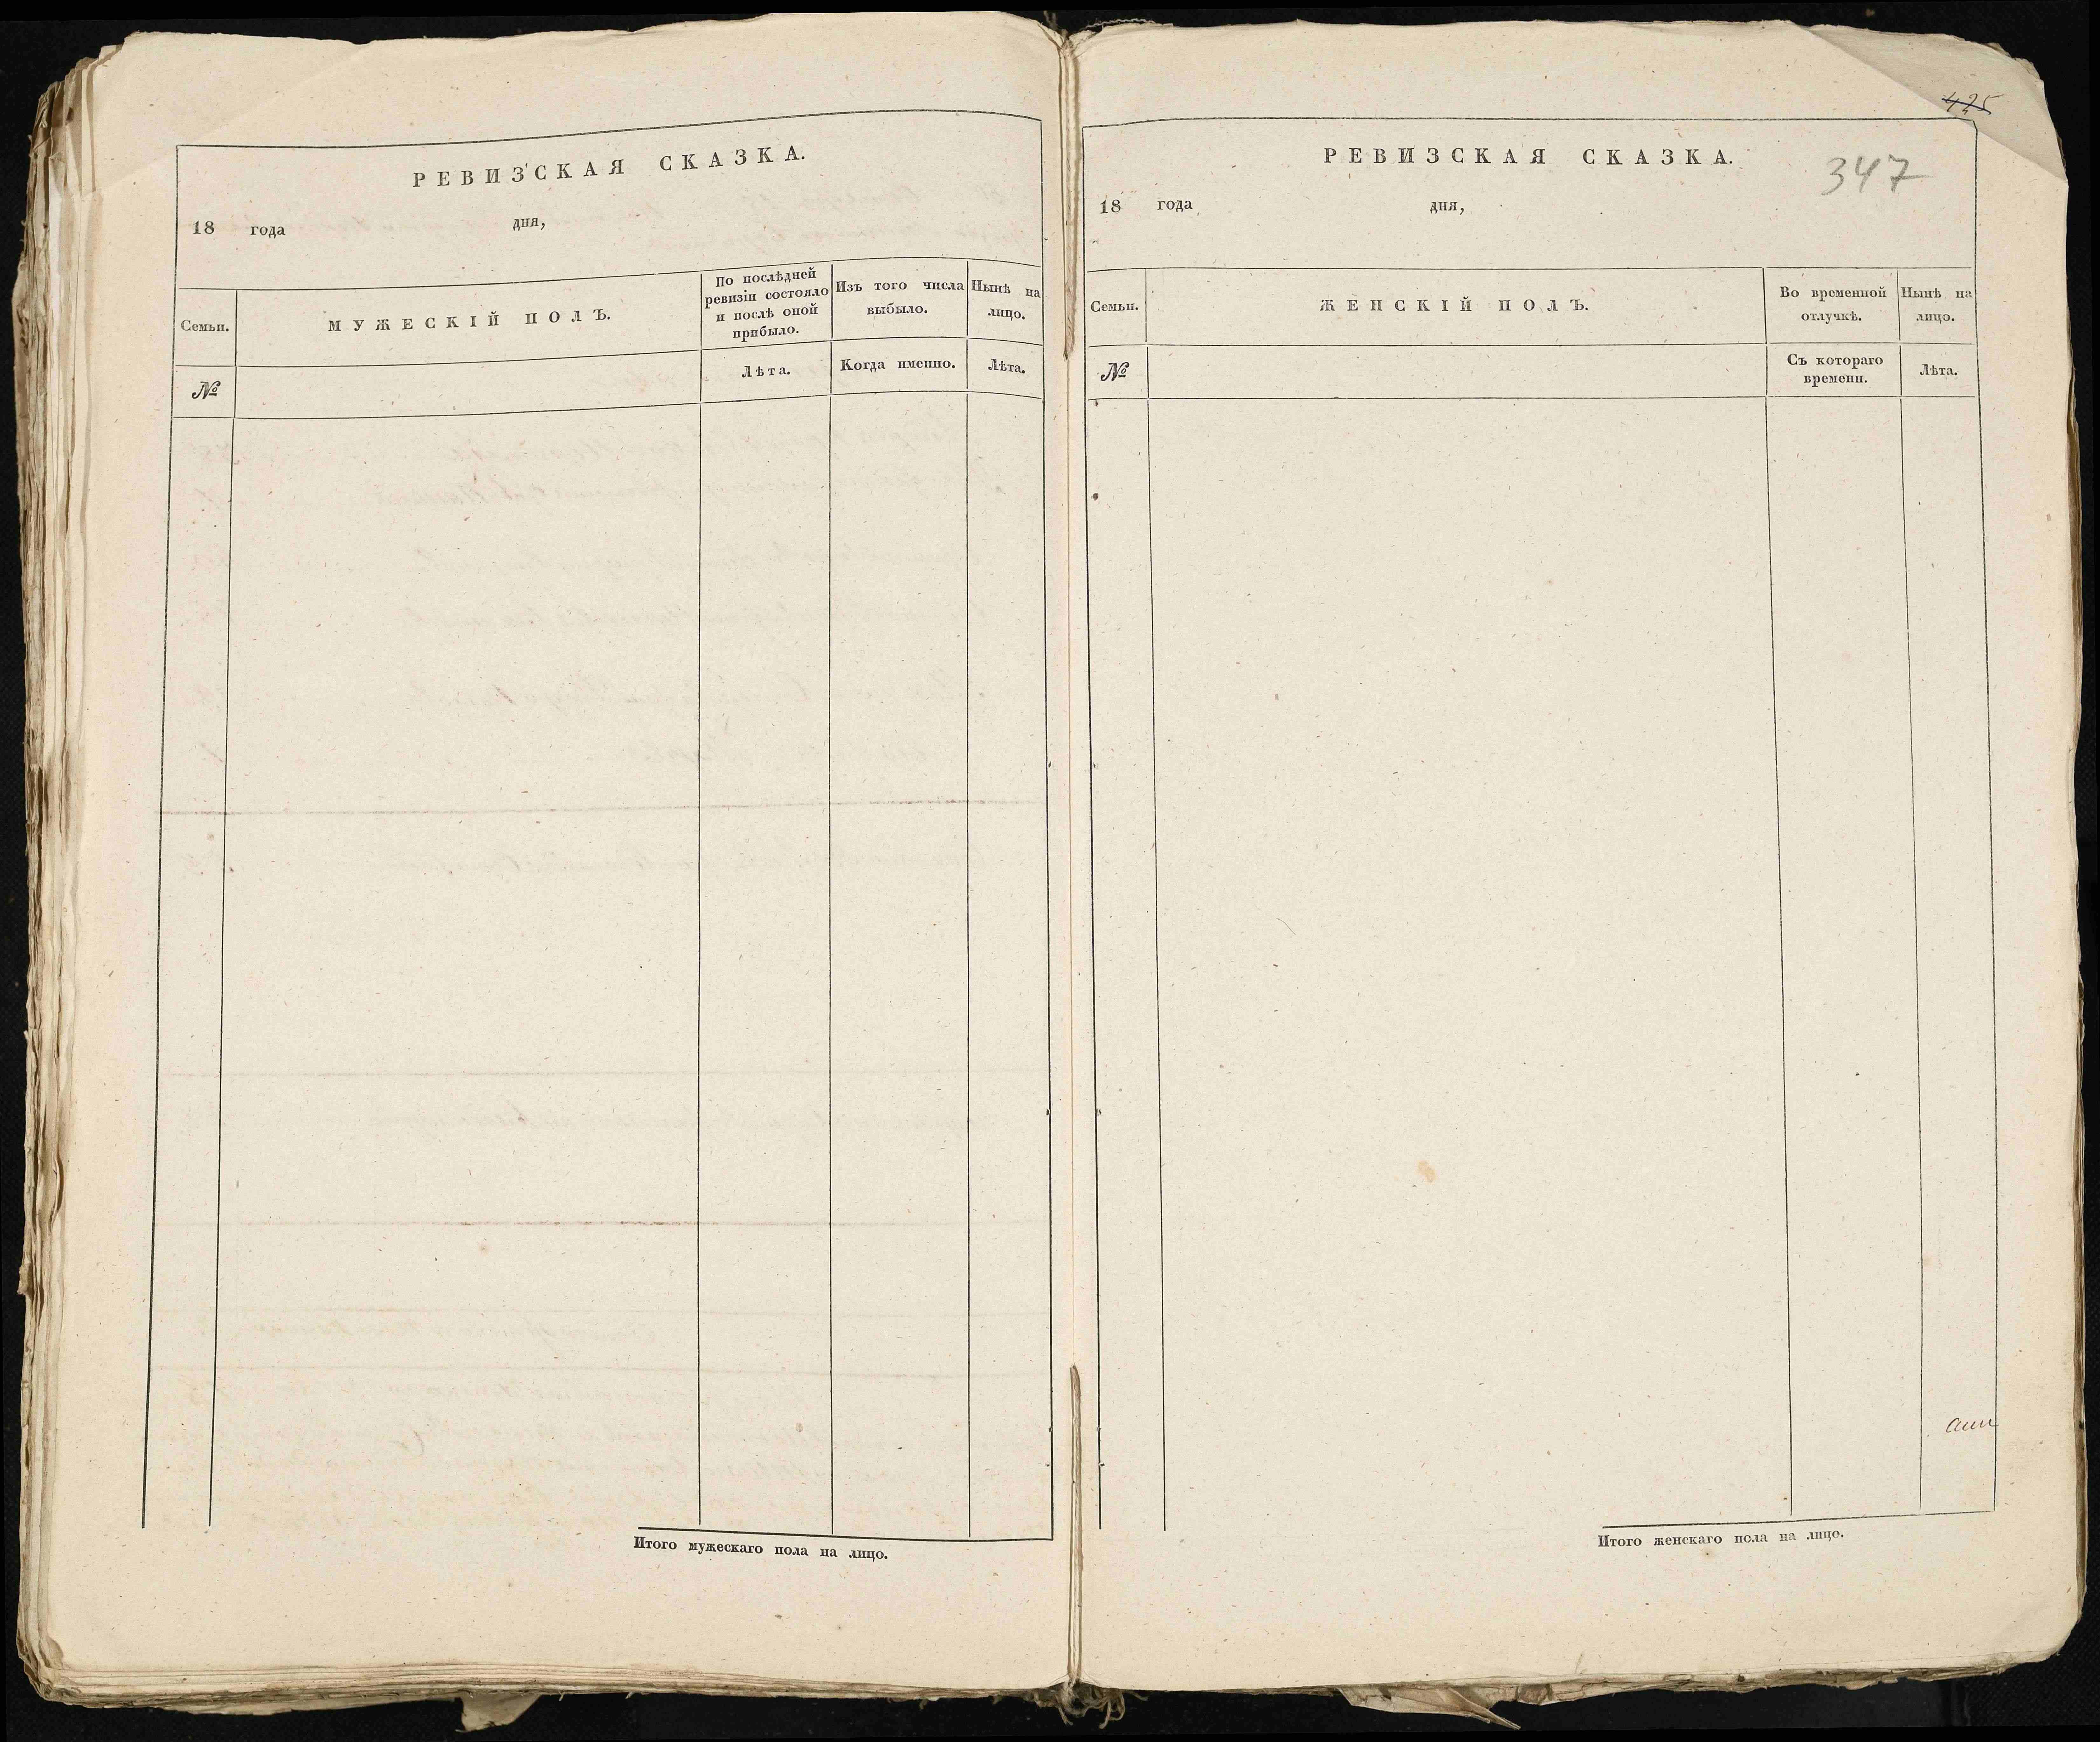 РЕВИЗСКАЯ СКАЗКА.
18 года дня,
Семьи.
МУЖЕСКІЙ ПОЛЪ.
По послѣдней
ревизіи состояло
и послѣ оной
прибыло.
Изъ того числа
выбыло.
Нынѣ на
лицо.
№
Лѣта.
Когда именно.
Лѣта.
Итого мужескаго пола на лицо.
425
РЕВИЗСКАЯ СКАЗКА.
347
18 года дня,
Семьи.
ЖЕНСКІЙ ПОЛЪ.
Во временной
отлучкѣ.
Нынѣ на
лицо.
№
Съ котораго
времени.
Лѣта.
Итого женскаго пола на лицо.